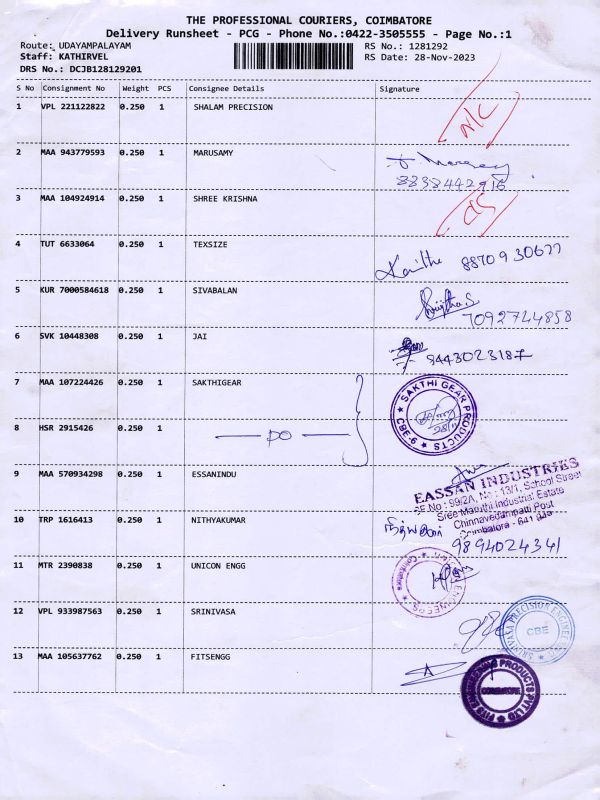 THE PROFESSIONAL COURIERS, COIMBATORE
Delivery Runsheet - PCG - Phone No.:0422-3505555 - Page No.:1
Route: UDAYAMPALAYAM
Staff: KATHIRVEL
DRS No.: DCJB128129201
RS No.: 1281292
RS Date: 28-Nov-2023
S No Consignment No Weight PCS Consignee Details Signature
1 VPL 221122822 0.250 1 SHALAM PRECISION N/C
2 MAA 943779593 0.250 1 MARUSAMY
8838442916
3 MAA 104924914 0.250 1 SHREE KRISHNA
4 TUT 6633064 0.250 1 TEXSIZE 88709 30677
5 KUR 7000584618 0.250 1 SIVABALAN
7092744858
6 SVK 10448308 0.250 1 JAI 8443023187
7 MAA 107224426 0.250 1 SAKTHIGEAR
SAKTHI GEAR PRODUCTS
CBE-6
8 HSR 2915426 0.250 1 DO
9 MAA 570934298 0.250 1 ESSANINDU
EASSAN INDUSTRIES
99/2A, No : 13/1, School Street
Sree Maruthi Industrial Estate
Chinnavedampatti Post
Coimbatore - 641
10 TRP 1616413 0.250 1 NITHYAKUMAR நித்யகுமார்
9894024341
11 MTR 2390838 0.250 1 UNICON ENGG
12 VPL 933987563 0.250 1 SRINIVASA
SRINIVASA PRECISION ENGINEERING
CBE
13 MAA 105637762 0.250 1 FITSENGG
FITS ENGINEERING PRODUCTS PVT LTD
COIMBATORE